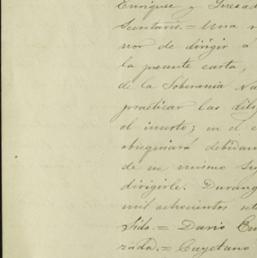 Enriquez y
Secretario. = Una r
nor de dirigir a
la presente carta,
de la Soberania Na
practicar las dili
el inserto; en el c
obsequiará debidam
de su mismo su
dirigirle. Durang
mil ochocientos och
= Dario En
= Cayetano